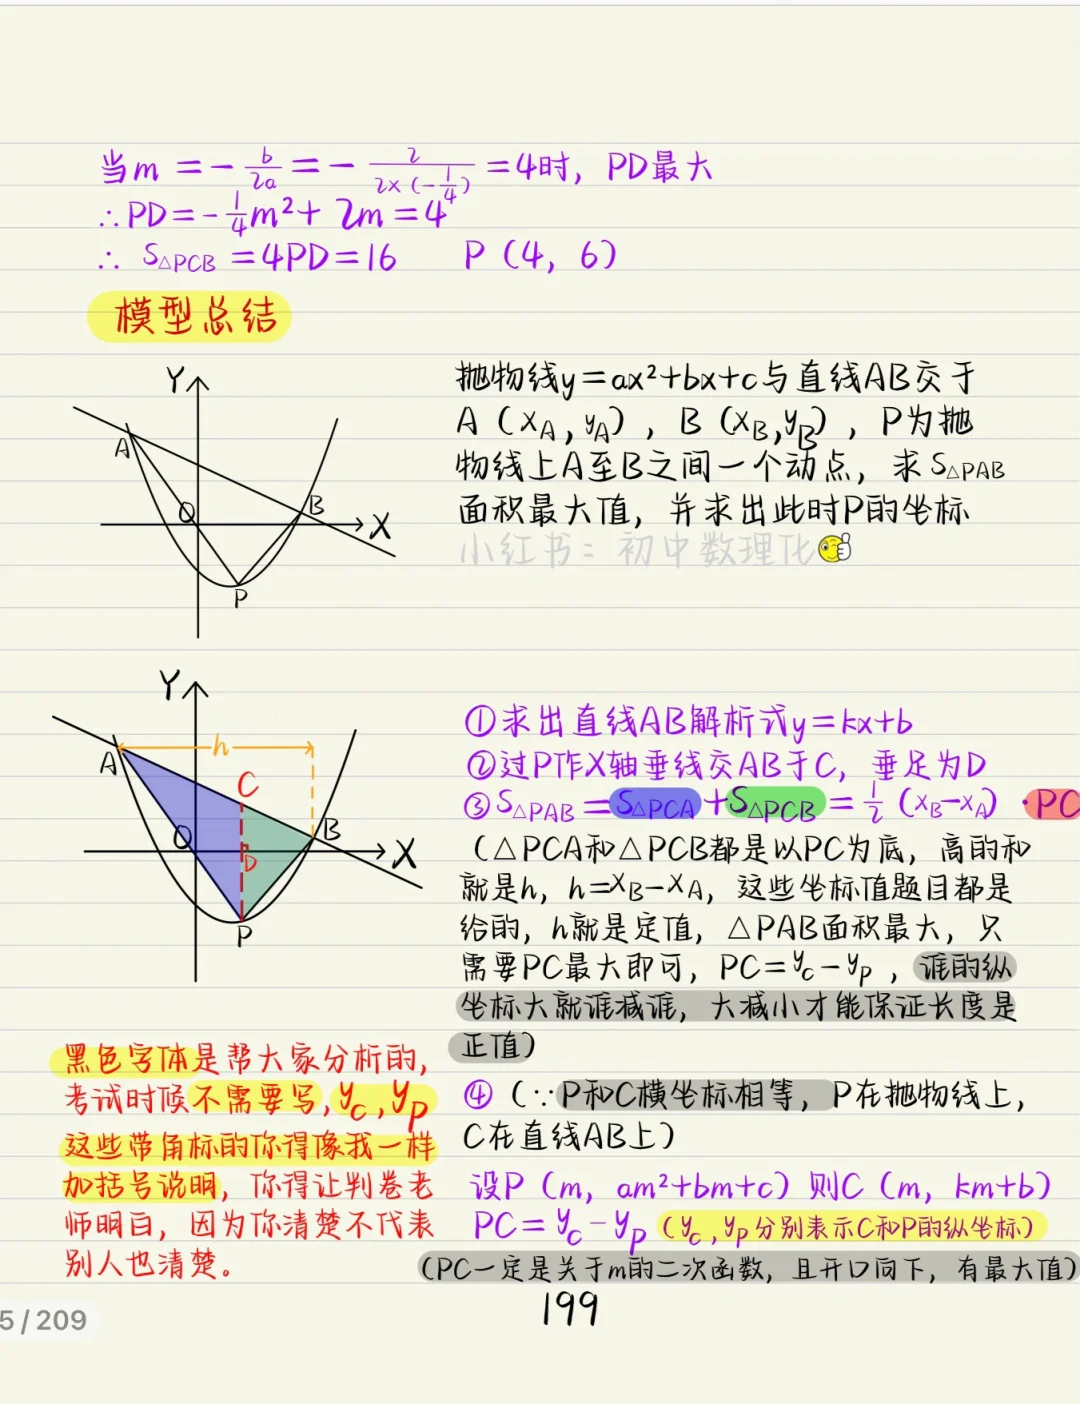 当m=-b/2a=-2/2×(-1/4)=4时，PD最大
∴PD=-1/4m²+2m=4
∴ S△PCB=4PD=16 P（4，6）
模型总结
抛物线y=ax²+bx+c与直线AB交于
A（xA,yA），B（xB,yB），P为抛
物线上A至B之间一个动点，求S△PAB
面积最大值，并求出此时P的坐标
小红书：初中数理化
Y
A
O
B
X
P
Y
h
A
C
O
B
D
X
P
①求出直线AB解析式y=kx+b
②过P作X轴垂线交AB于C，垂足为D
③S△PAB=S△PCA+S△PCB=1/2（xB-xA）·PC
（△PCA和△PCB都是以PC为底，高的和
就是h，h=xB-xA，这些坐标值题目都是
给的，h就是定值，△PAB面积最大，只
需要PC最大即可，PC=yc-yp，谁的纵
坐标大就谁减谁，大减小才能保证长度是
正值）
④（∵P和C横坐标相等，P在抛物线上，
C在直线AB上）
设P（m，am²+bm+c）则C（m，km+b）
PC=yc-yp（yc,yp分别表示C和P的纵坐标）
（PC一定是关于m的二次函数，且开口向下，有最大值）
黑色字体是帮大家分析的，
考试时候不需要写，yc,yp
这些带角标的你得像我一样
加括号说明，你得让判卷老
师明白，因为你清楚不代表
别人也清楚。
199
5/209